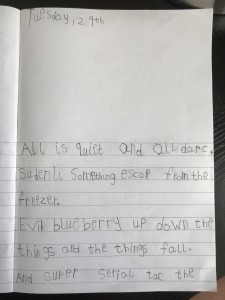 Tuesday, 29th
All is quiet and all darc.
Sudenll something escap from the
freezer.
Evil blueberry up down the
things and the things fall.
And super serial tac the